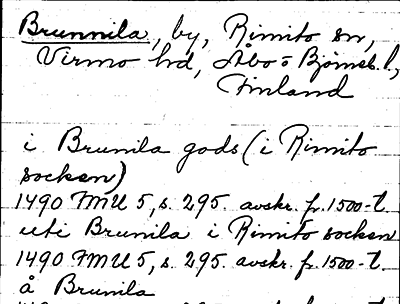 Brunnila, by, Rimito sn,
Virmo hd, Åbo o Björneb. l,
Finland
i Brunila gods (i Rimito
socken)
1490 FMU 5, s. 295. avskr. fr. 1500-t.
uti Brunila i Rimito socken
1490 FMU 5, s. 295. avskr. fr. 1500-t.
å Brunila